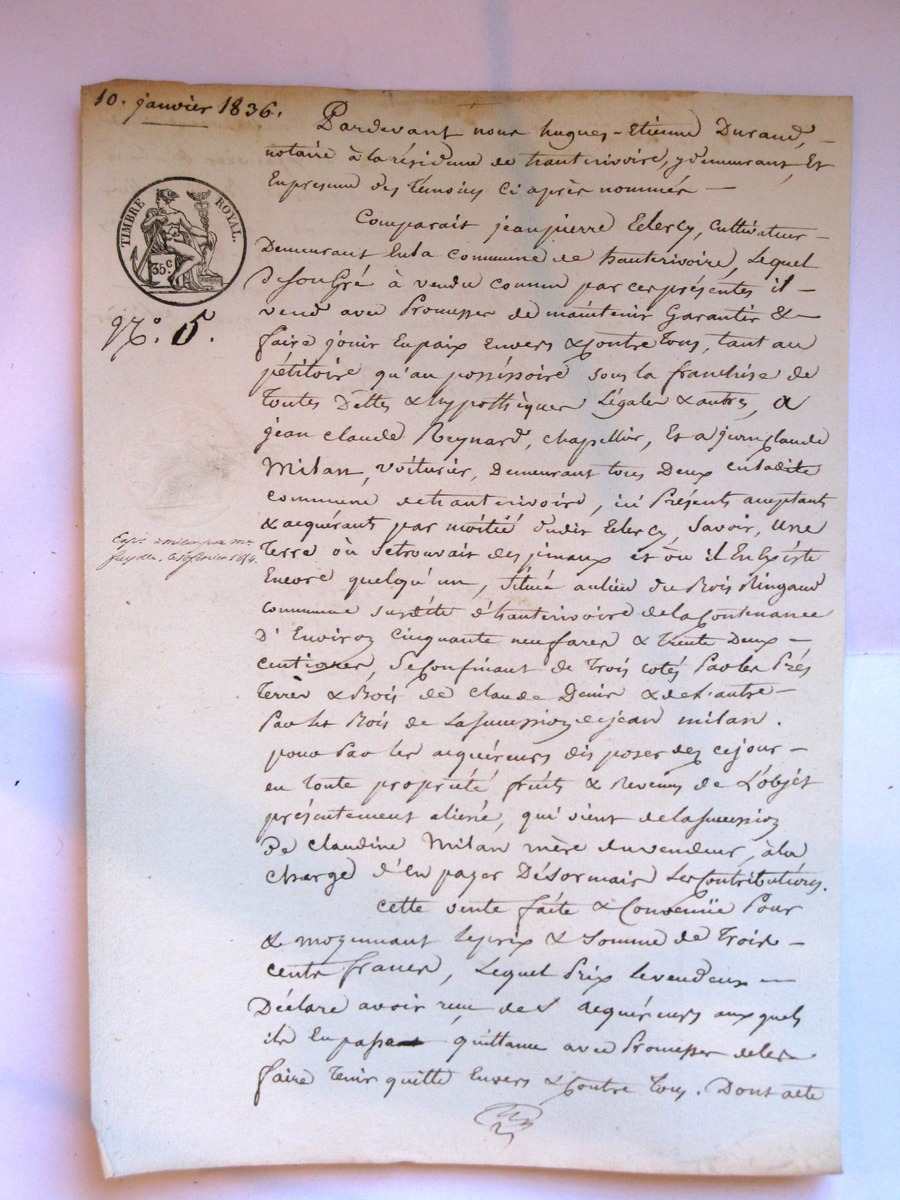 10. janvier 1836.
Pardevant nous hugues-Etienne Durand,
notaire à la résidence de hauterivoire, y demeurant, Et
En presence des temoins ci après nommés —
TIMBRE ROYAL.
35 c
N.° 5.
Comparait jean pierre Eclercy, Cultivateur
Demeurant En la commune de hauterivoire, Lequel
De son Gré à vendu comme par ces présentes il —
vend avec Promesses de maintenir Garantir &
faire jouir En paix Envers & Contre tous, tant au
pétitoire qu'au posséssoire sous la franchise de
toutes Dettes & hypothèques Légales & autres, a
jean claude Reynard, chapellier, Et a jean claude
Milan, voiturier, Demeurant tous Deux en ladite
commune de hauterivoire, ici Présents acceptants
& acquérant par moitié dudit Eclercy, Savoir, une
Terre où se trouvait des et où il En Existe
Encore quelqu'un, Située au lieu du Bois Ringaud
commune susdite d'hauterivoire de la Contenance
D'Environ Cinquante neuf ares & Trente Deux —
centiares, Se Confinant de Trois cotés Par les Prés
Terres & Bois de Claude Denis & de L'autre —
Par les Bois de La succession de jean milan.
pour Par les acquéreurs disposer dès ce jour —
en toute propriété fruits & Revenus de L'objet
présentement aliéné, qui vient de la succession
De claudine Milan mère du vendeur, à la
charge d'en payer Désormais Les Contributions.
cette vente faite & Convenüe Pour
& moyennant le prix & Somme de Trois —
cents francs, Lequel Prix le vendeur —
Déclare avoir reçu des acquéreurs aux quels
il En passe quittance avec Promesses de les
faire Tenir quitte Envers & Contre Tous. Dont acte